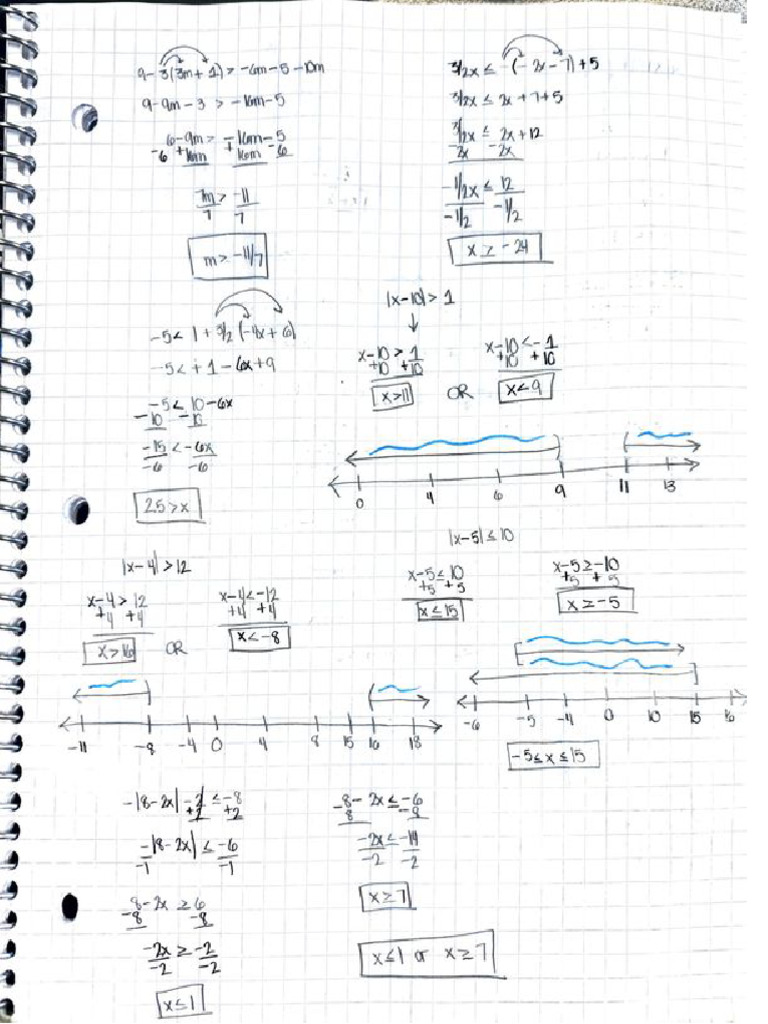 9-3(3m+1)>-6m-5-10m
9-9m-3 > -16m-5
6-9m > -16m-5
-6 +16m +16m -6
7m > -11
7 7
m > -11/7
3/2x ≤ -(-2x-7)+5
3/2x ≤ 2x+7+5
3/2x ≤ 2x+12
-2x -2x
-1/2x ≤ 12
-1/2 -1/2
x ≥ -24
-5 < 1 + 3/2(-4x+6)
-5 < +1-6x+9
-5 < 10-6x
-10 -10
-15 < -6x
-6 -6
2.5 > x
|x-10| > 1
↓
x-10 > 1
+10 +10
x > 11
OR
x-10 < -1
+10 +10
x < 9
0 4 6 9 11 13
|x-4| > 12
x-4 > 12
+4 +4
x > 16
OR
x-4 < -12
+4 +4
x < -8
-11 -8 -4 0 4 8 15 16 18
|x-5| ≤ 10
x-5 ≤ 10
+5 +5
x ≤ 15
x-5 ≥ -10
+5 +5
x ≥ -5
-6 -5 -4 0 10 15 16
-5 ≤ x ≤ 15
-|8-2x| -2 ≤ -8
+2 +2
-|8-2x| ≤ -6
-1 -1
8-2x ≥ 6
-8 -8
-2x ≥ -2
-2 -2
x ≤ 1
8-2x ≤ -6
-8 -8
-2x ≤ -14
-2 -2
x ≥ 7
x ≤ 1 or x ≥ 7